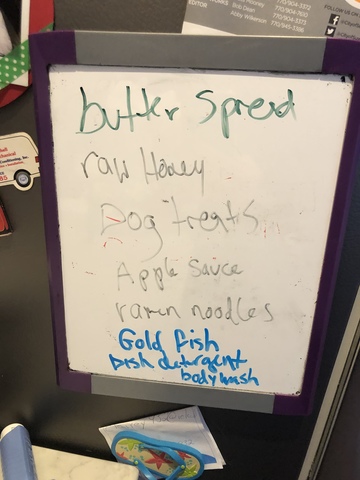 EDITOR
770/904-3372
Bob Dean 770/904-3373
Abby Wilkerson
770/945-3386
FOLLOW US ON
butter spread
raw Honey
Dog treats
Apple Sauce
ramen noodles
Gold fish
Dish detergent
body wash